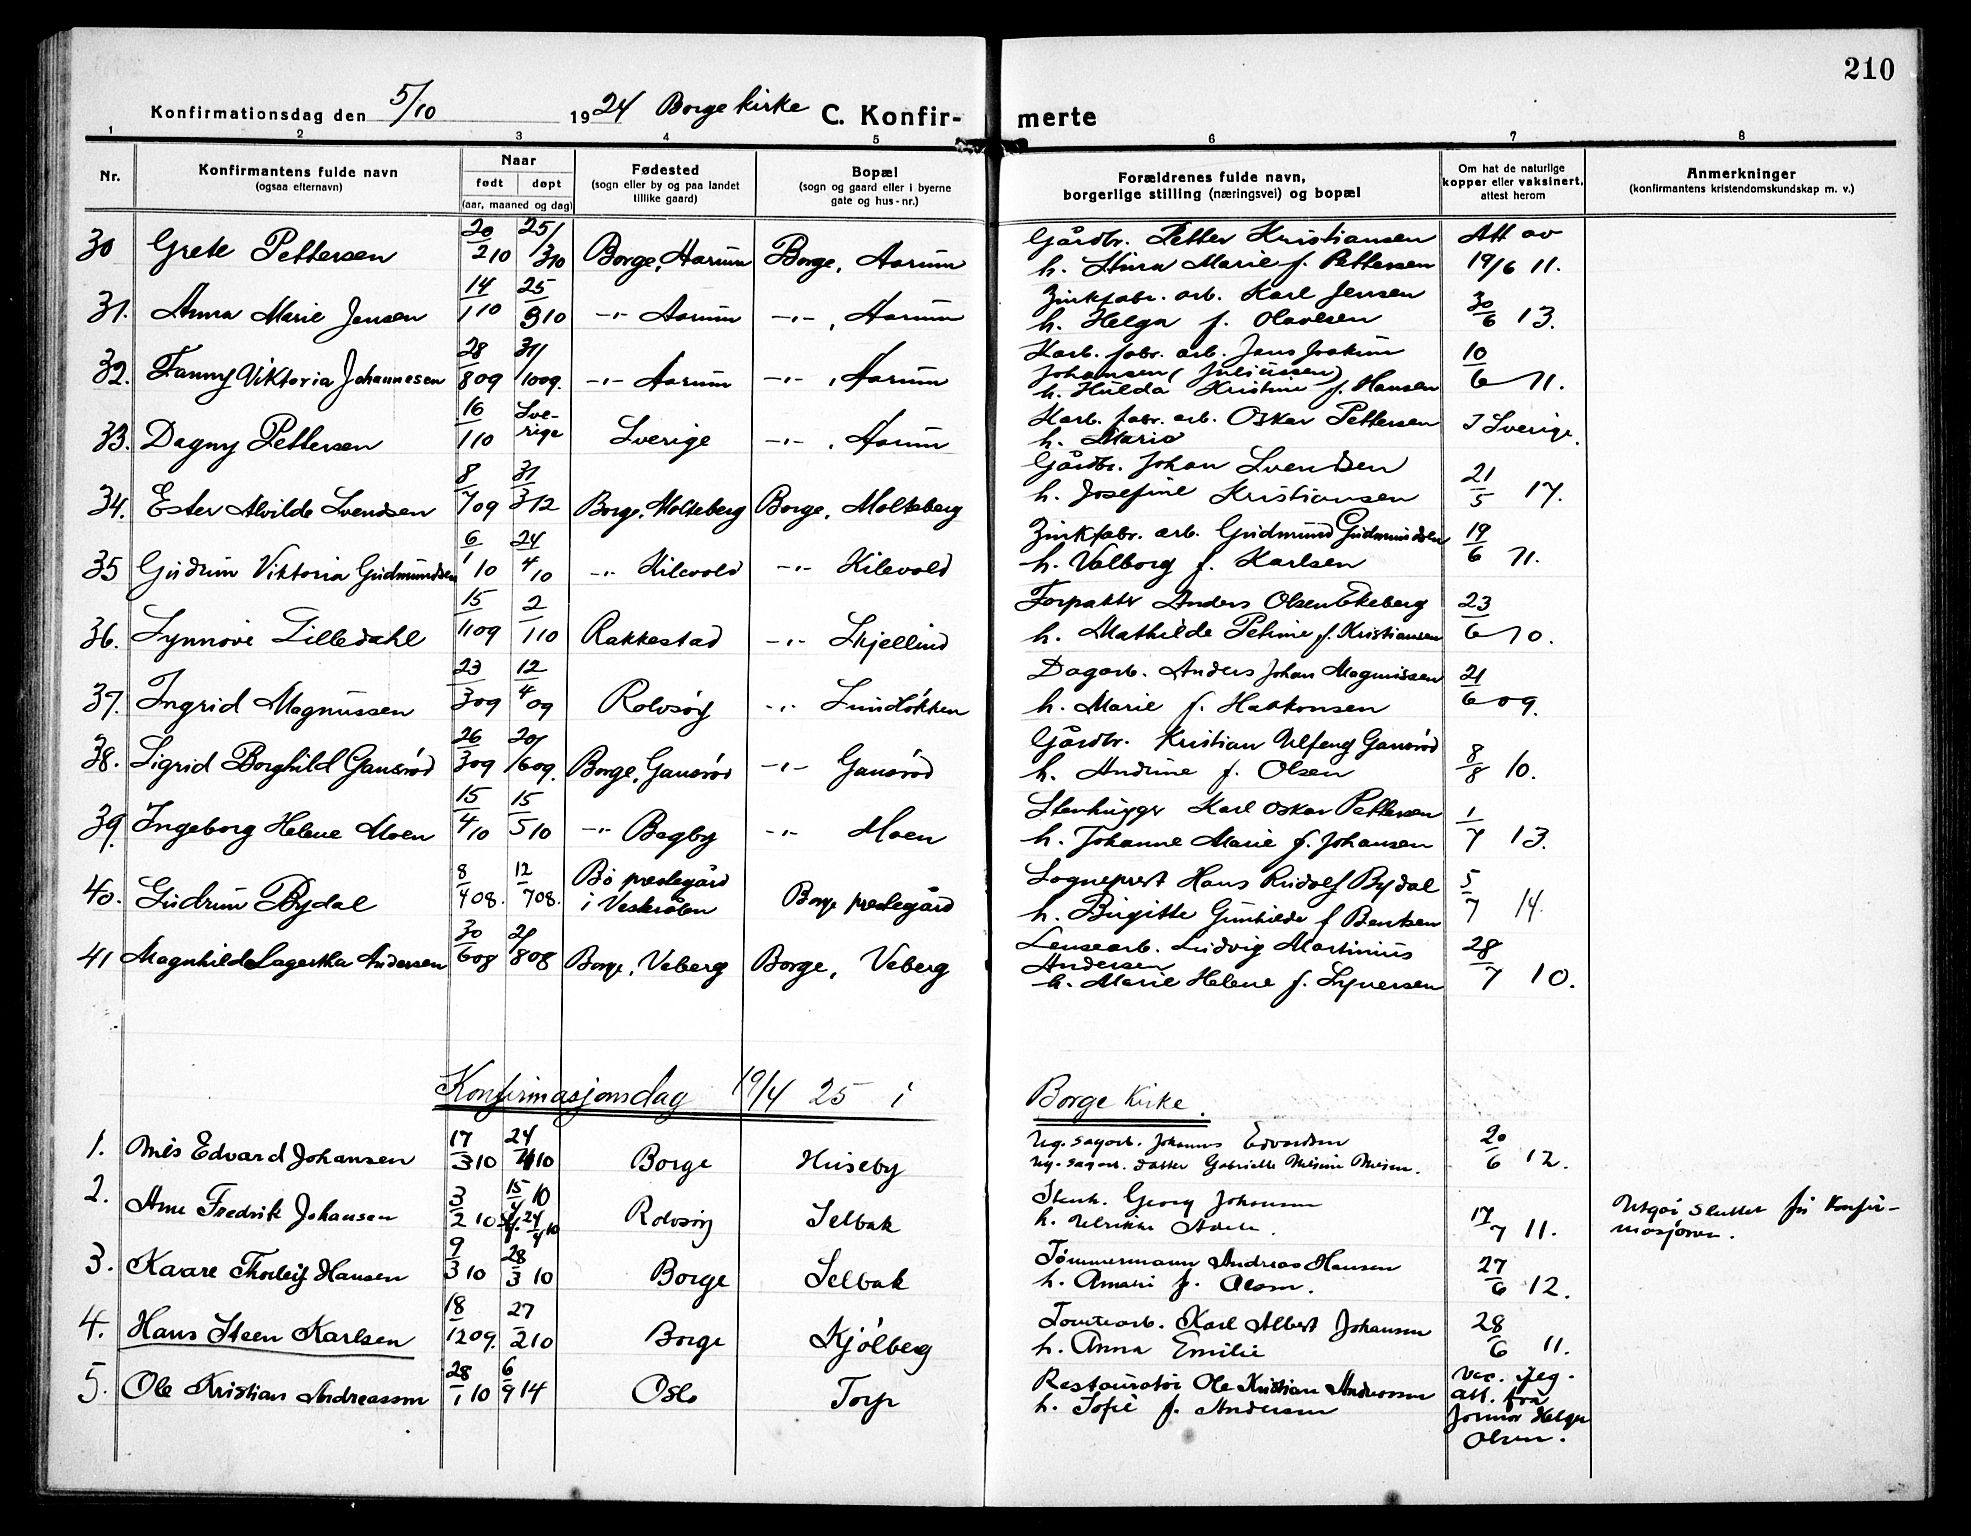 210
Konfirmationsdag den 5/10 1924 Borge kirke C. Konfir- merte
1 2 3 4 5 6 7 8
Nr. Konfirmantens fulde navn (ogsaa efternavn) Naar født døpt (aar, maaned og dag) Fødested (sogn eller by og paa landet tillike gaard) Bopæl (sogn og gaard eller i byerne gate og hus-nr.) Forældrenes fulde navn, borgerlige stilling (næringsvei) og bopæl Om hat de naturlige kopper eller vaksinert, attest herom Anmerkninger (konfirmantens kristendomskundskap m. v.)
30 Grete Pettersen 20/2 10 25/3 10 Borge, Aarum Borge, Aarum Gårdbr. Petter Kristiansen Att av
h. Marie f. Pettersen 19/6 11.
31. Anna Marie Jensen 14/1 10 25/3 10 -"- Aarum -"-, Aarum Zinkfabr. arb. Karl Jensen
h. Helga f. Olavesen 30/6 13.
32. Fanny Viktoria Johannesen 28/8 09 31/10 09. -"- Aarum -"-, Aarum Karb. fabr. arb. Jens Joakim
Johansen (Juliussen) 10/6 11.
h. Hulda Kristine f. Hansen
33. Dagny Pettersen 16/1 10 Sve-rige Sverige -"-, Aarum Karb. fabr. arb. Oskar Pettersen I Sverige.
h. Maria
34. Ester Alvilde Svendsen 8/7 09 31/3 12 Borge, Molteberg Borge, Molteberg Gårdbr. Johan Svendsen
h. Josefine Kristiansen 21/5 17.
35 Gudrun Viktoria Gudmundsen 6/1 10 24/4 10 -"- Kilevold -"- Kilevold Zinkfabr. arb. Gudmund Gudmundsen
h. Valborg f. Karlsen 19/6 11.
36. Synnøve Lilledahl 15/11 09 2/1 10 Rakkestad -"- Skjellind Forpakter Anders Olsen Ekeberg
h. Mathilde Petrine f. Kristiansen 23/6 10.
37. Ingrid Magnussen 23/3 09 12/4 09 Rolvsøy -"- Lundløkken Dagarb. Anders Johan Magnussen
h. Marie f. Haakonsen 21/6 09.
38. Sigrid Borghild Gansrød 26/3 09 20/6 09. Borge, Gansrød -"- Gansrød Gårdbr. Kristian Gansrød
h. Andrine f. Olsen 8/8 10.
39. Ingeborg Helene Moen 15/4 10 15/5 10 -"- Begby -"- Moen Stenhugger Karl Oskar Pettersen
h. Johanne Marie f. Johansen 1/7 13.
40. Gudrun Bydal 8/4 08. 12/7 08. Bø prestegård i Vesterålen Borge prestegård Sogneprest Hans Rudolf Bydal
h. Birgitte Gunhilde f Bentsen 5/7 14.
41 Magnhilde Lagertha Andersen 30/6 08 2/8 08 Borge, Veberg Borge, Veberg Lensearb. Ludvig Martinius
Andersen 28/7 10.
h. Marie Helene f. Syversen
Konfirmasjonsdag 19/4 25 i Borge Kirke.
1. Nils Edvard Johansen 17/3 10 24/4 10 Borge Huseby Ug. sagarb. Johannes Edvardsen
20/6 12.
2. Arne Fredrik Johansen 3/2 10 15/4 10 Rolvsøy Selbak Stenh. Georg Johansen
h. Ulrikke 17/7 11. Utgår sluttet før Konfir-
masjonen.
3. Kaare Thorleif Hansen 9/3 10 28/3 10 Borge Selbak Tømmermann Andreas Hansen
h. f. Olsen. 27/6 12.
4. Hans Steen Karlsen 18/12 09. 27/2 10 Borge Kjølberg Tomtearb. Karl Albert Johansen
h. Anna Emilie 28/6 11.
5. Ole Kristian Andreassen 28/1 10 6/9 14 Oslo Torp Restauratør Ole Kristian Andreassen
h. Sofie f. Andersen
att. fra
jormor Helga
Olsen.